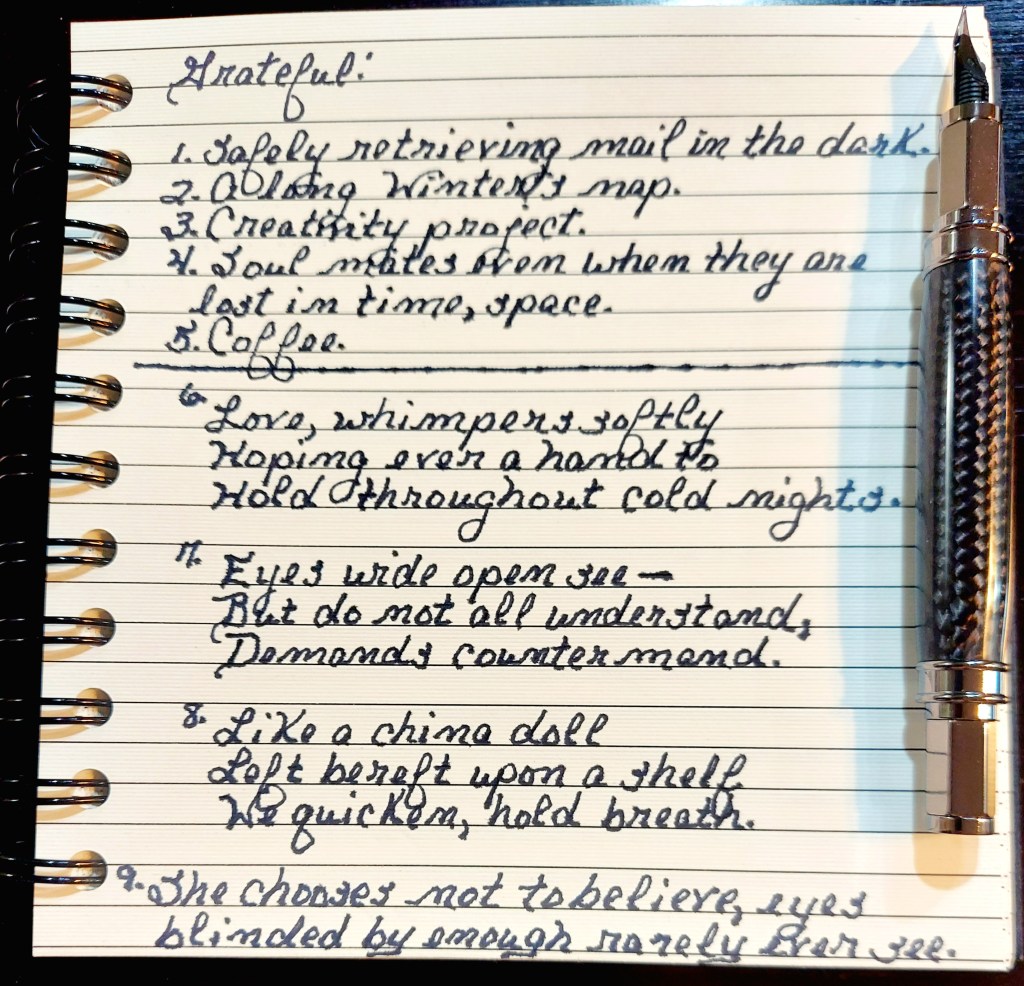 Grateful:
1. Safely retrieving mail in the dark.
2. A long Winter's nap.
3. Creativity project.
4. Soul mates even when they are
lost in time, space.
5. Coffee.
6. Love, whimpers softly
Hoping ever a hand to
Hold throughout cold nights.
7. Eyes wide open see—
But do not all understand,
Demands counter mand.
8. Like a china doll
Left bereft upon a shelf
We quicken, hold breath.
9. She chooses not to believe, eyes
blinded by enough rarely ever see.